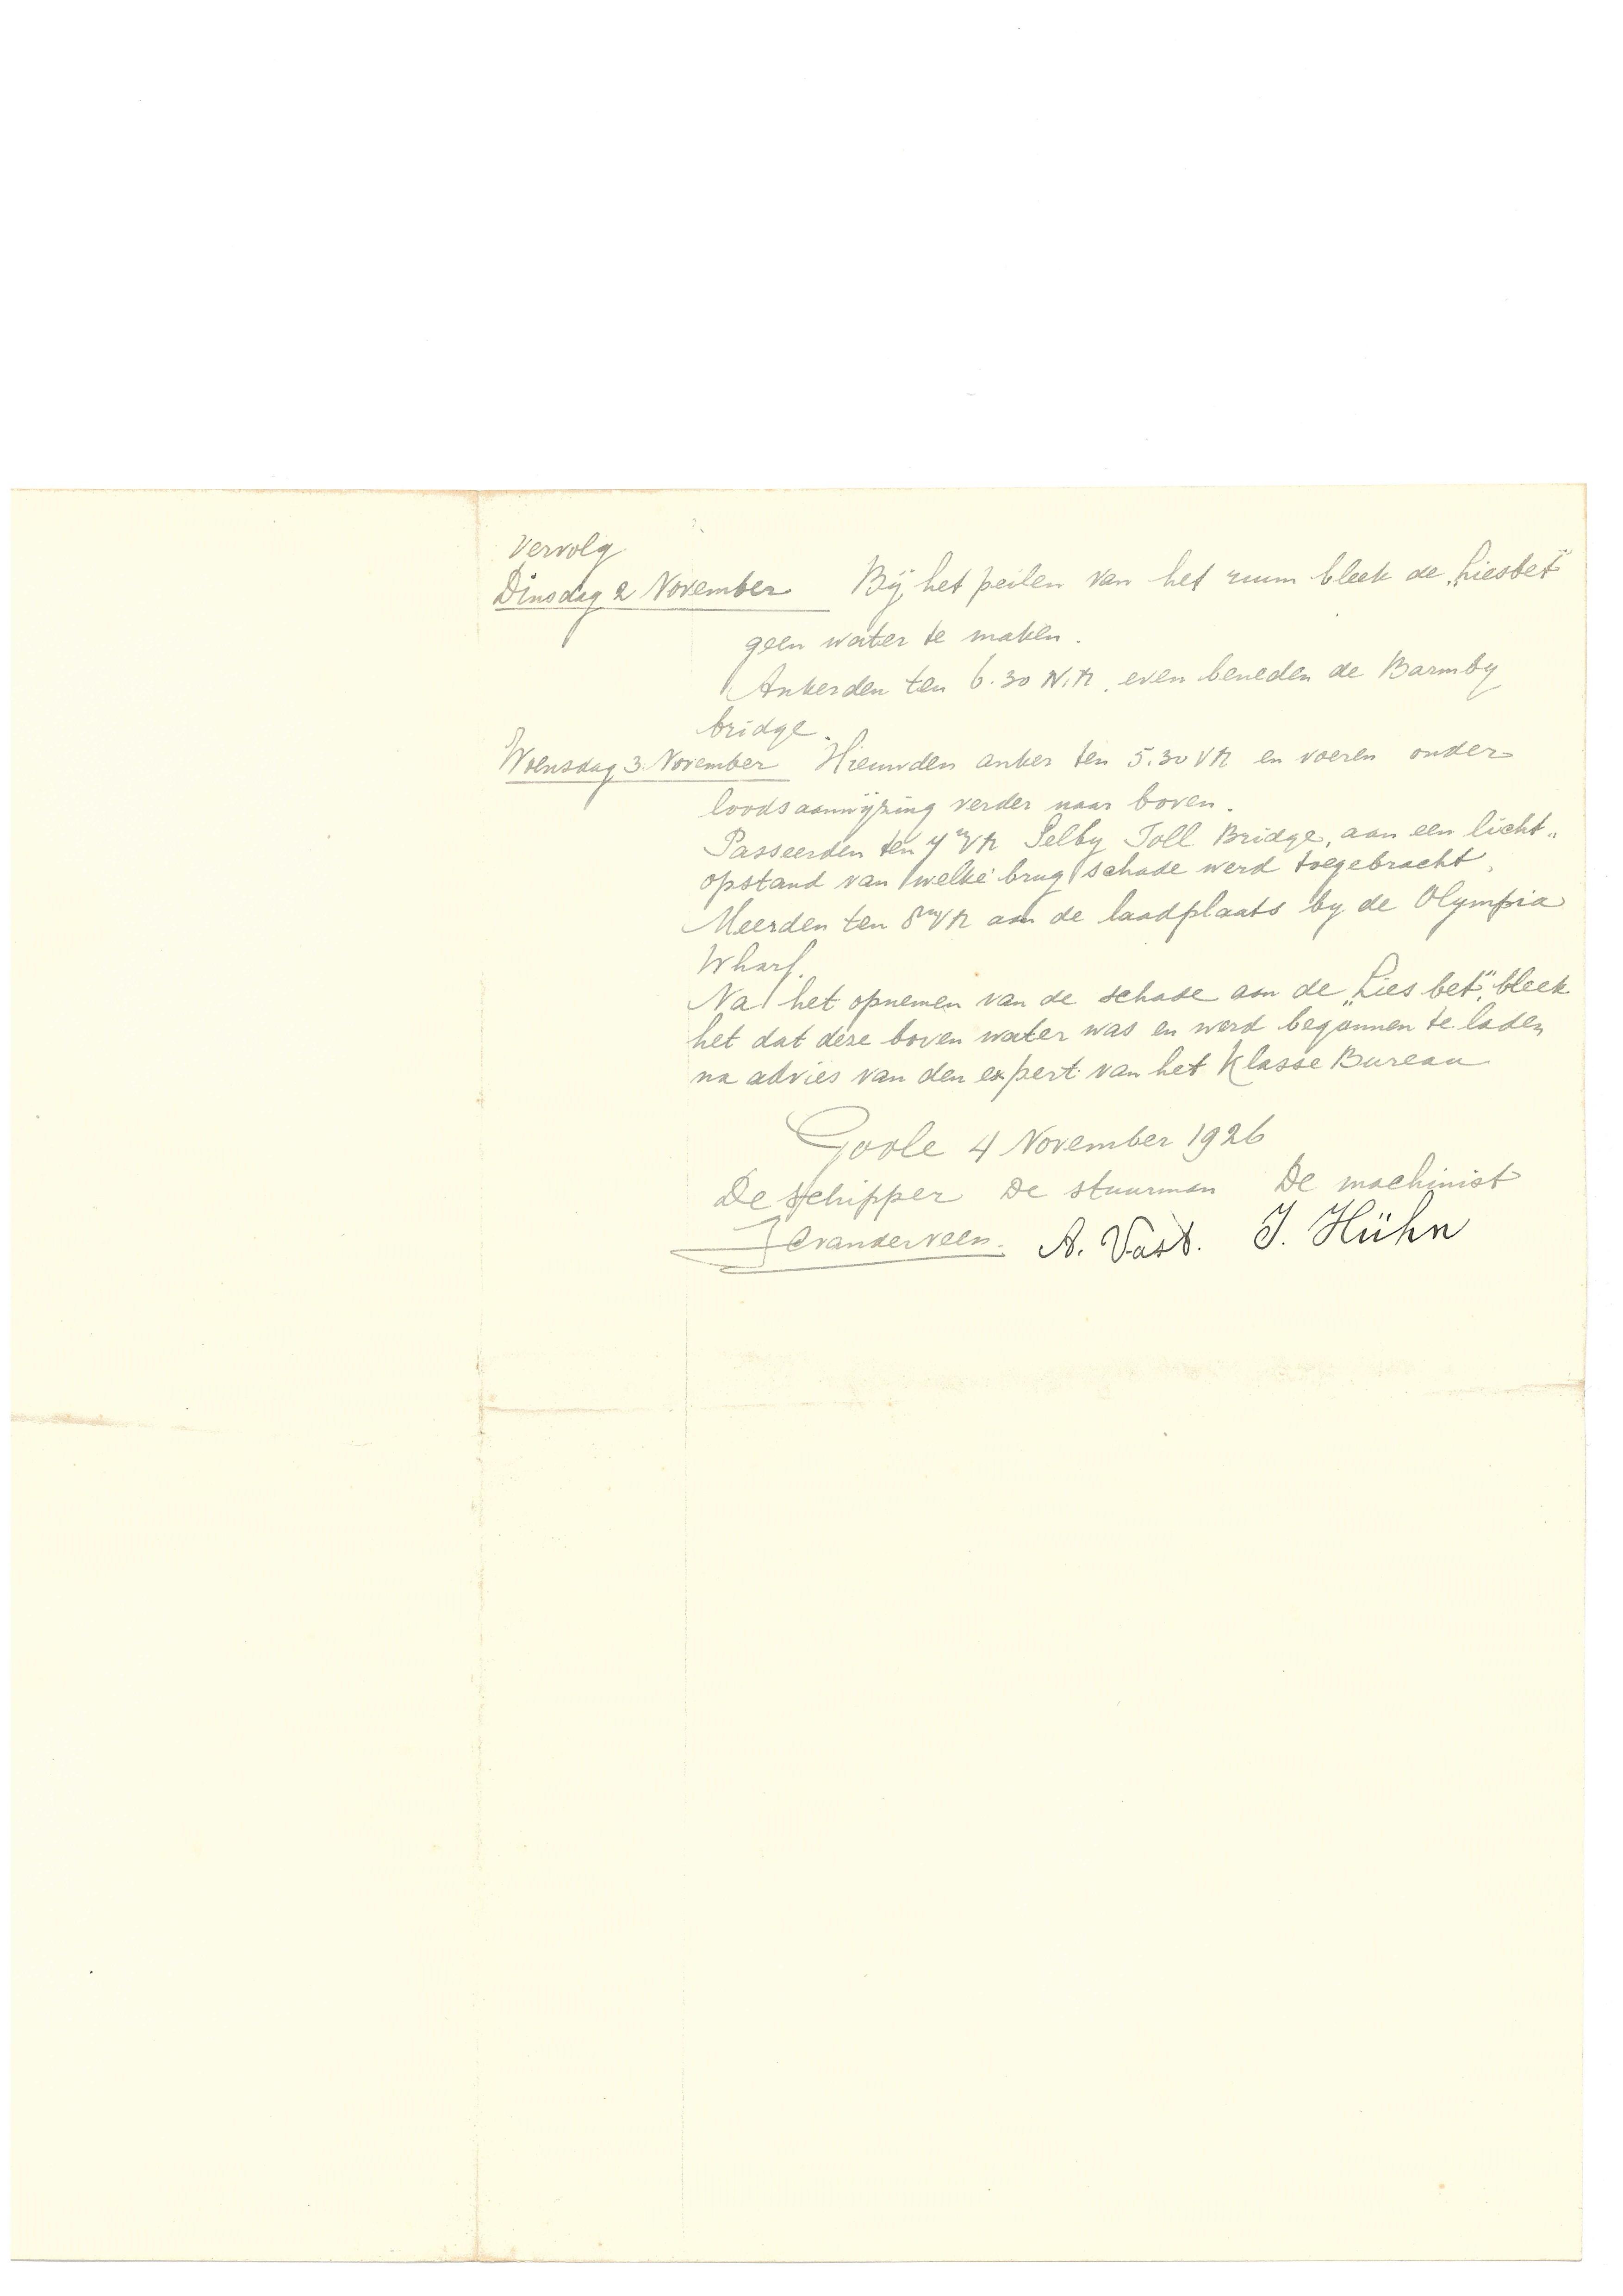 Vervolg
Dinsdag 2 November Bij het peilen van het ruim bleek de „Liesbet"
geen water te maken.
Ankerden ten 6.30 N.M. even beneden de Barmby
bridge.
Woensdag 3 November Hieuwden anker ten 5.30 VM en voeren onder
loodsaanwijzing verder naar boven.
Passeerden ten VM Selby Toll Bridge, aan een licht„
opstand van welke brug schade werd toegebracht.
Meerden ten 8 VM aan de laadplaats by de Olympia
Wharf.
Na het opnemen van de schade aan de „Liesbet", bleek
het dat deze boven water was en werd begonnen te laden
na advies van den expert van het Klasse Bureau
Goole 4 November 1926
De schipper De stuurman De machinist
Jcvanderveen. A. Vast. J. Hühn